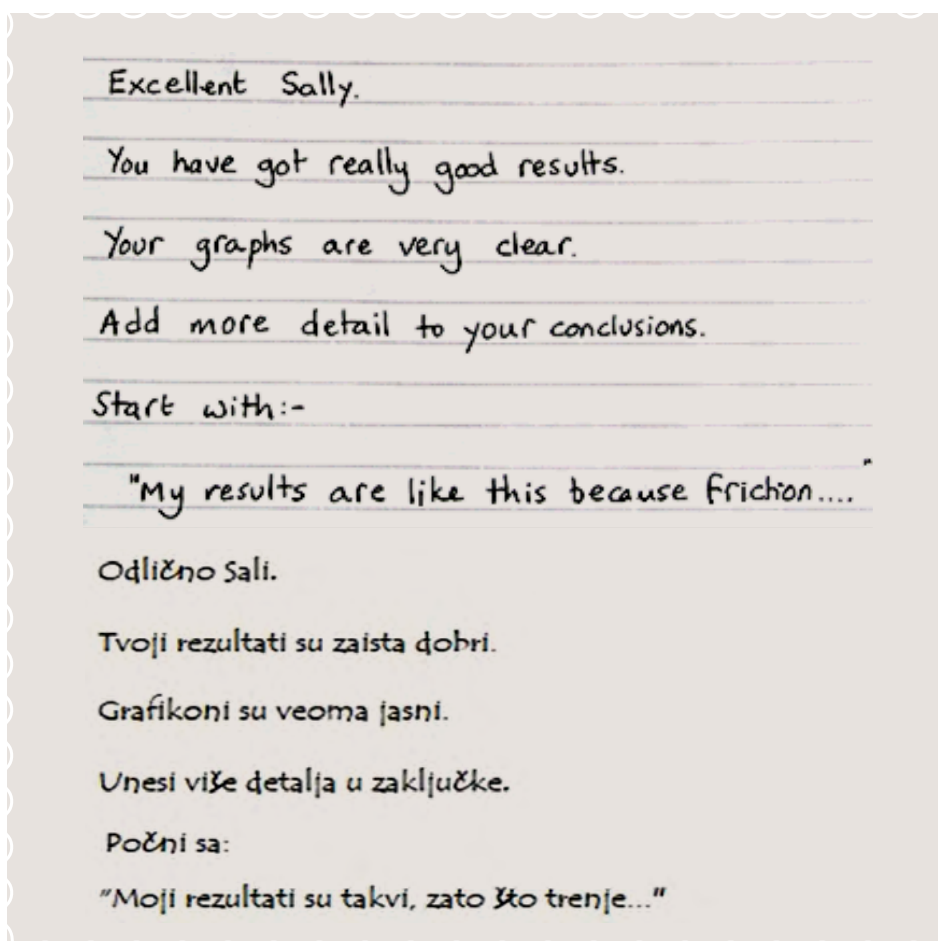 Excellent Sally.
You have got really good results.
Your graphs are very clear.
Add more detail to your conclusions.
Start with:-
"My results are like this because friction...."
Odlično Sali.
Tvoji rezultati su zaista dobri.
Grafikoni su veoma jasni.
Unesi više detalja u zaključke.
Počni sa:
"Moji rezultati su takvi, zato što trenje..."